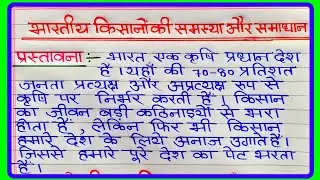 भारतीय किसानों की समस्या और समाधान
प्रस्तावना :- भारत एक कृषि प्रधान देश
हैं । यहाँ की 70-80 प्रतिशत
जनता प्रत्यक्ष और अप्रत्यक्ष रूप से
कृषि पर निर्भर करती हैं । किसान
का जीवन बड़ी कठिनाइयों से भरा
होता हैं , लेकिन फिर भी किसान
हमारे देश के लिये अनाज उगाते हैं।
जिससे हमारे पूरे देश का पेट भरता
हैं ।